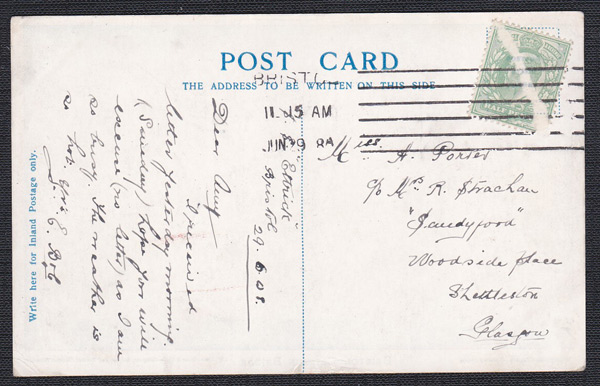 POST CARD
THE ADDRESS TO BE WRITTEN ON THIS SIDE
BRISTOL
11.15 AM
JUN 29 08
Write here for Inland Postage only.
"Ettrick"
Bristol
29.6.08.
Dear Amy
I received
letter yesterday morning.
(Sunday) hope you will
excuse (no letter) as I am
so busy. The weather is
so hot.
Miss. A. Porter
c/o Mrs R. Strachan
"Sandyford"
Woodside Place
Shettleston
Glasgow